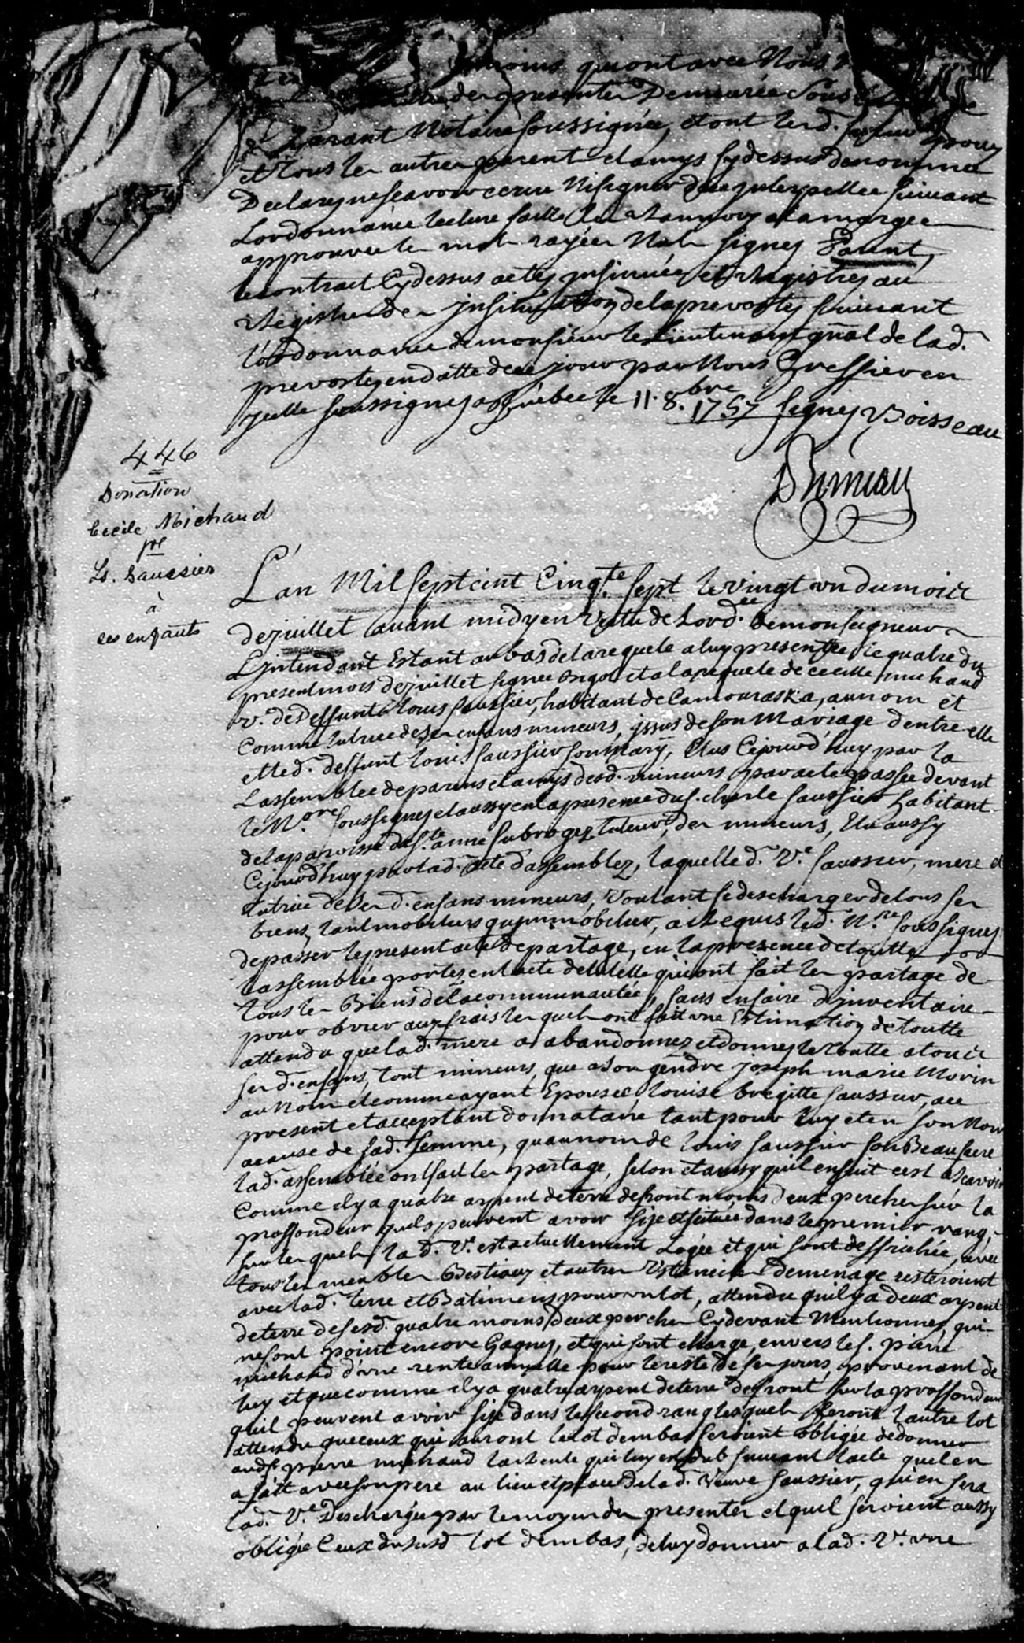 moins qui ont avec Nous
des presentes Demeurée Sous
Notaire soussigné, et ont led. 
et tous les autres parent et amys sydessus denommé
Declaré ne scavoir ecrire Ni signer de ce interpellée suivant
Lordonnance lecture faitte en marge
approuvé les mots rayée Nuls signes Parent,
le contract Cydessus a etés insinuée et Registrés au
Registre des insinuations de la prevostés suivant
L'ordonnance de monsieur le Lieutenant gnâl de lad.
prevostés en datte de ce jour par Nous Greffier en
ycelle soussignes a Quebec le 11. 8.bre 1757 signes Boisseau
446
Donation
Cecile Michaud
Ls. Saussier
à
ses enfants
L'an Mil sept cent Cinq.te sept le vingt un du mois
de juillet avant midy en vertu de Lord.ce de monseigneur
L'jntendant Estant au bas de la requete a luy presentée le quatre du
present mois de juillet signée Bigot et a la requete de cecille michaud
v. de Deffunt Louis saussier, habitant de Camouraska, au nom et
Comme tutrice de ses enfans mineurs, issus de son Mariage d'entre elle
et led. deffunt Louis saussier son mary, Elus Cejourd'huy par la
Lassemblée de parens et amys desd. mineurs par acte passée devant
le N.ore soussignes et aussy en la presence du s. charle saussier habitant
de la paroisse de s.te anne subrogez tuteur, des mineurs, Elu aussy
Cejourd'huy par lad. acte d'assemblez, laquelle d. V.e saussier, mere et
tutrice de ses d. enfans mineurs, Voulant se descharger de tous ses
biens, tant mobiliers qu'immobilier, a Requis led. N.re soussignes
de passer le present acte de partage, en la presence de toutte
lassemblée portés en l'acte de tutelle qui ont fait les partage de
tous les Biens de la communautée, sans en faire d'jnventaire
pour obvier aux frais lesquels ont fait une Estimation de toutte
attendu que lad. mere a abandonnez et donnes le toutte a tous
ses d. enfans, tout mineurs, que a son gendre joseph marie Morin
au Nom et comme ayant Epousée Louise brigitte saussier, au
present et acceptant donnataire tant pour luy et en son Nom
a cause de sad. femme, qu'au nom de Louis saussier son Beaufrere
lad. assemblée ont fait les partage, selon et ainsy qu'il en suit cest ascavoir
Comme il y a quatre arpent de terre de front moins deux perches sur la
proffondeur quels peuvent avoir sise et scituée dans le premier rang,
sur lesquels lad. V.e est actuellement Logée et qui sont deffrichée, avec
tous les meubles Bestiaux et autres Ustancilles de menage resteront
avec lad. terre et Batimens pour un lot, attendu qu'il y a deux arpent
de terre desusd. quatre moins deux perches Cydevant Mentionnes, qui
ne sont point encore Gagnes, et qui sont charge envers le s. pierre
michaud d'une rente annuelle pour le reste de ses jours, provenant de
luy et que comme il y a quatre arpent de terre de front sur la proffondeur
qu'il peuvent avoir sise dans le second rang lesquels seront l'autre lot
attendu que ceux qui auront le lot d'embas seroient obligée de donner
aud. s. pierre michaud la rente qui luy est dub suivant l'acte quel en
a fait avec son pere au lieu et place de lad. Veuve saussier, qui en sera
lad. V.e Deschargée par le moyen des presentes et quil seroient aussy
obligée Ceux du susd lot d'embas, de luy donner a lad. V.e une